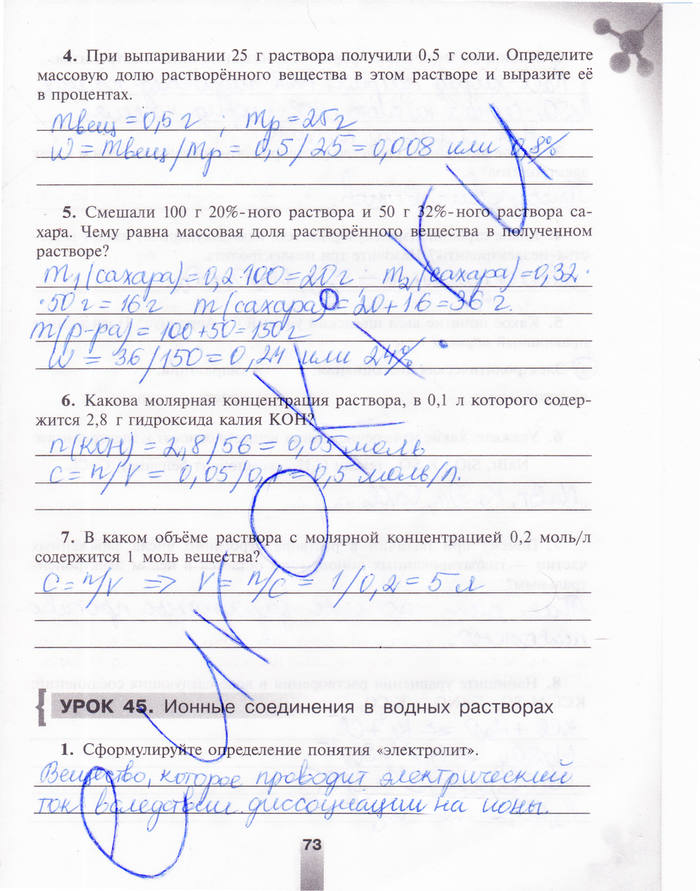 4. При выпаривании 25 г раствора получили 0,5 г соли. Определите
массовую долю растворённого вещества в этом растворе и выразите её
в процентах.
mвещ = 0,5 г ; mр = 25 г
w = mвещ/mр = 0,5/25 = 0,008 или 0,8%
5. Смешали 100 г 20%-ного раствора и 50 г 32%-ного раствора са-
хара. Чему равна массовая доля растворённого вещества в полученном
растворе?
m₁(сахара) = 0,2·100 = 20 г m₂(сахара) = 0,32·
·50 г = 16 г m(сахара) = 20+16 = 36 г.
m(р-ра) = 100+50 = 150 г
w = 36/150 = 0,24 или 24%.
6. Какова молярная концентрация раствора, в 0,1 л которого содер-
жится 2,8 г гидроксида калия KOH?
n(KOH) = 2,8/56 = 0,05 моль
c = n/V = 0,05/0,1 = 0,5 моль/л.
7. В каком объёме раствора с молярной концентрацией 0,2 моль/л
содержится 1 моль вещества?
c = n/V => V = n/c = 1/0,2 = 5 л
УРОК 45. Ионные соединения в водных растворах
1. Сформулируйте определение понятия «электролит».
Вещество, которое проводит электрический
ток вследствии диссоциации на ионы.
73